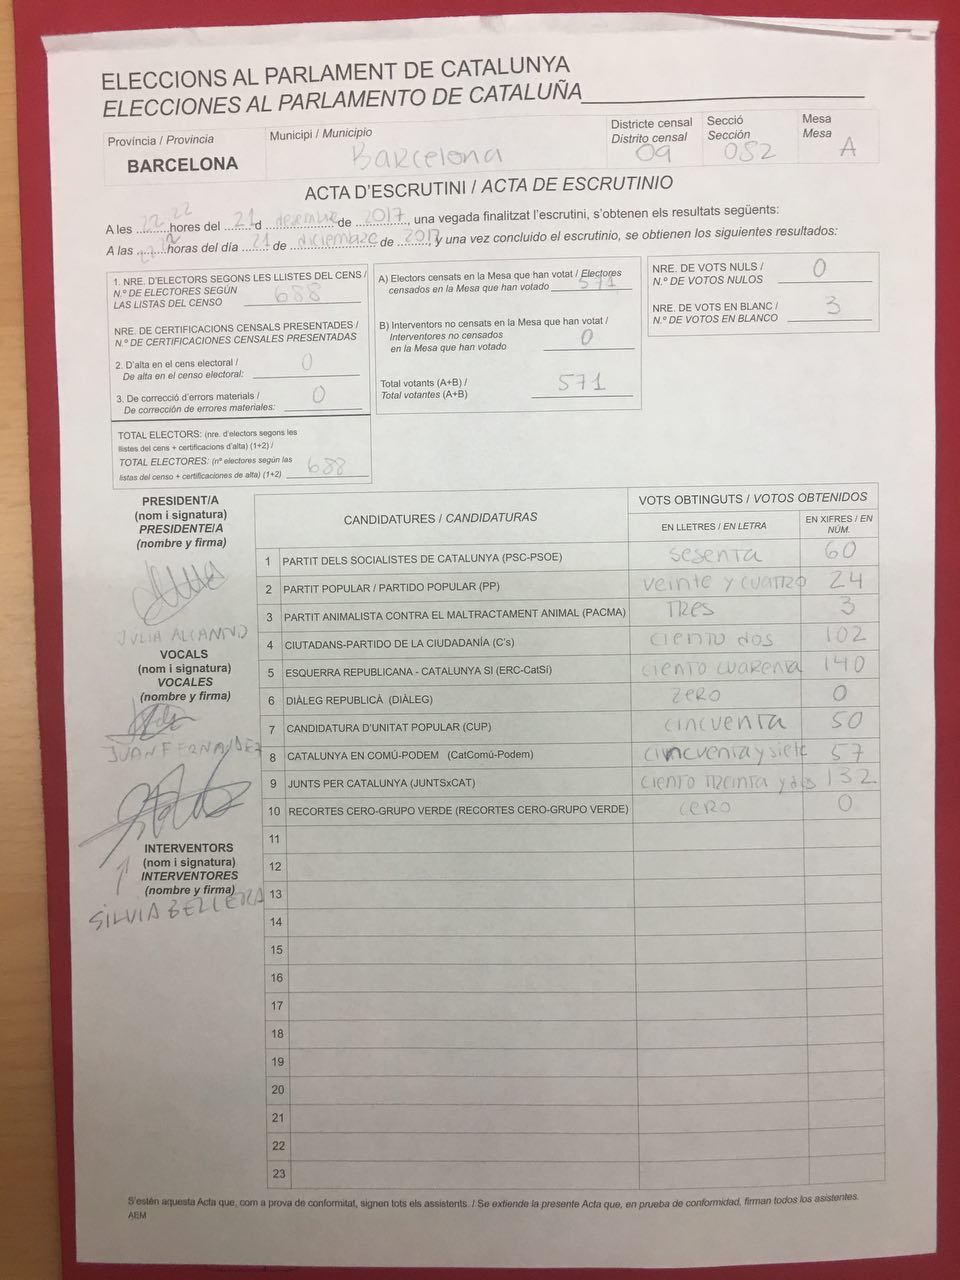 ELECCIONS AL PARLAMENT DE CATALUNYA
ELECCIONES AL PARLAMENTO DE CATALUÑA
Província / Provincia
BARCELONA
Municipi / Municipio
Barcelona
Districte censal
Distrito censal
09
Secció
Sección
052
Mesa
Mesa
A
ACTA D'ESCRUTINI / ACTA DE ESCRUTINIO
A les 22 22 hores del 21 d desembre de 2017, una vegada finalitzat l'escrutini, s'obtenen els resultats següents:
A las 22 22 horas del día 21 de diciembre de 2017 y una vez concluido el escrutinio, se obtienen los siguientes resultados:
1. NRE. D'ELECTORS SEGONS LES LLISTES DEL CENS /
N.º DE ELECTORES SEGÚN
LAS LISTAS DEL CENSO 688
NRE. DE CERTIFICACIONS CENSALS PRESENTADES /
N.º DE CERTIFICACIONES CENSALES PRESENTADAS
2. D'alta en el cens electoral /
De alta en el censo electoral: 0
3. De correcció d'errors materials /
De corrección de errores materiales: 0
TOTAL ELECTORS: (nre. d'electors segons les
llistes del cens + certificacions d'alta) (1+2) /
TOTAL ELECTORES: (nº electores según las
listas del censo + certificaciones de alta) (1+2) 688
A) Electors censats en la Mesa que han votat / Electores
censados en la Mesa que han votado 571
B) Interventors no censats en la Mesa que han votat /
Interventores no censados
en la Mesa que han votado 0
Total votants (A+B) /
Total votantes (A+B) 571
NRE. DE VOTS NULS /
N.º DE VOTOS NULOS 0
NRE. DE VOTS EN BLANC /
N.º DE VOTOS EN BLANCO 3
PRESIDENT/A
(nom i signatura)
PRESIDENTE/A
(nombre y firma)
JULIA
VOCALS
(nom i signatura)
VOCALES
(nombre y firma)
JUAN FERNANDEZ
INTERVENTORS
(nom i signatura)
INTERVENTORES
(nombre y firma)
SILVIA
CANDIDATURES / CANDIDATURAS
VOTS OBTINGUTS / VOTOS OBTENIDOS
EN LLETRES / EN LETRA
EN XIFRES / EN NÚM.
1 PARTIT DELS SOCIALISTES DE CATALUNYA (PSC-PSOE) sesenta 60
2 PARTIT POPULAR / PARTIDO POPULAR (PP) veinte y cuatro 24
3 PARTIT ANIMALISTA CONTRA EL MALTRACTAMENT ANIMAL (PACMA) tres 3
4 CIUTADANS-PARTIDO DE LA CIUDADANÍA (C's) ciento dos 102
5 ESQUERRA REPUBLICANA - CATALUNYA SI (ERC-CatSí) ciento cuarenta 140
6 DIÀLEG REPUBLICÀ (DIÀLEG) zero 0
7 CANDIDATURA D'UNITAT POPULAR (CUP) cincuenta 50
8 CATALUNYA EN COMÚ-PODEM (CatComú-Podem) cincuenta y siete 57
9 JUNTS PER CATALUNYA (JUNTSxCAT) ciento treinta y dos 132
10 RECORTES CERO-GRUPO VERDE (RECORTES CERO-GRUPO VERDE) cero 0
11
12
13
14
15
16
17
18
19
20
21
22
23
S'estén aquesta Acta que, com a prova de conformitat, signen tots els assistents. / Se extiende la presente Acta que, en prueba de conformidad, firman todos los asistentes.
AEM